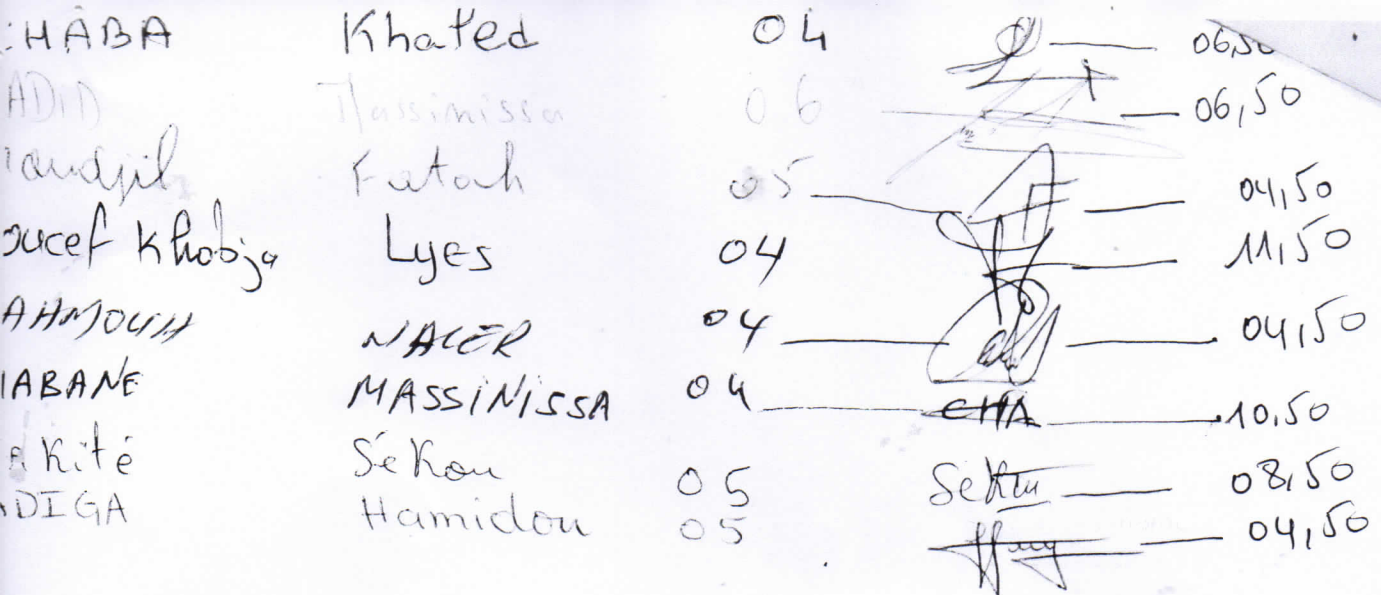 HABA Khaled 04 06,50
ADID Massinissa 06 06,50
oudjil Fatah 05 04,50
oucef Khobja Lyes 04 11,50
AHMOUH NACER 04 04,50
HABANE MASSINISSA 04 CHA 10,50
Kité Sékou 05 Sekou 08,50
ADIGA Hamidou 05 04,50